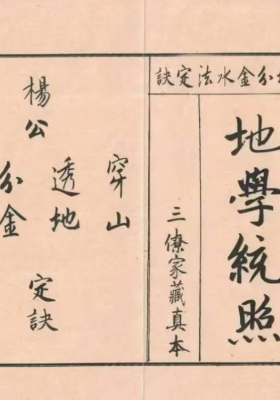 分金水法定訣
地學統照
三僚家藏真本
楊公
穿山
透地
分金
定訣